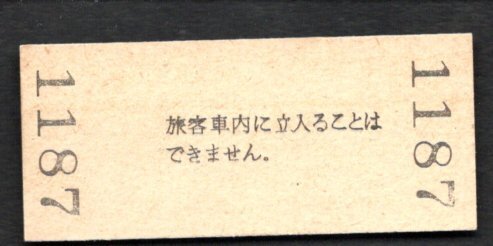 1187
旅客車内に立入ることは
できません。
1187